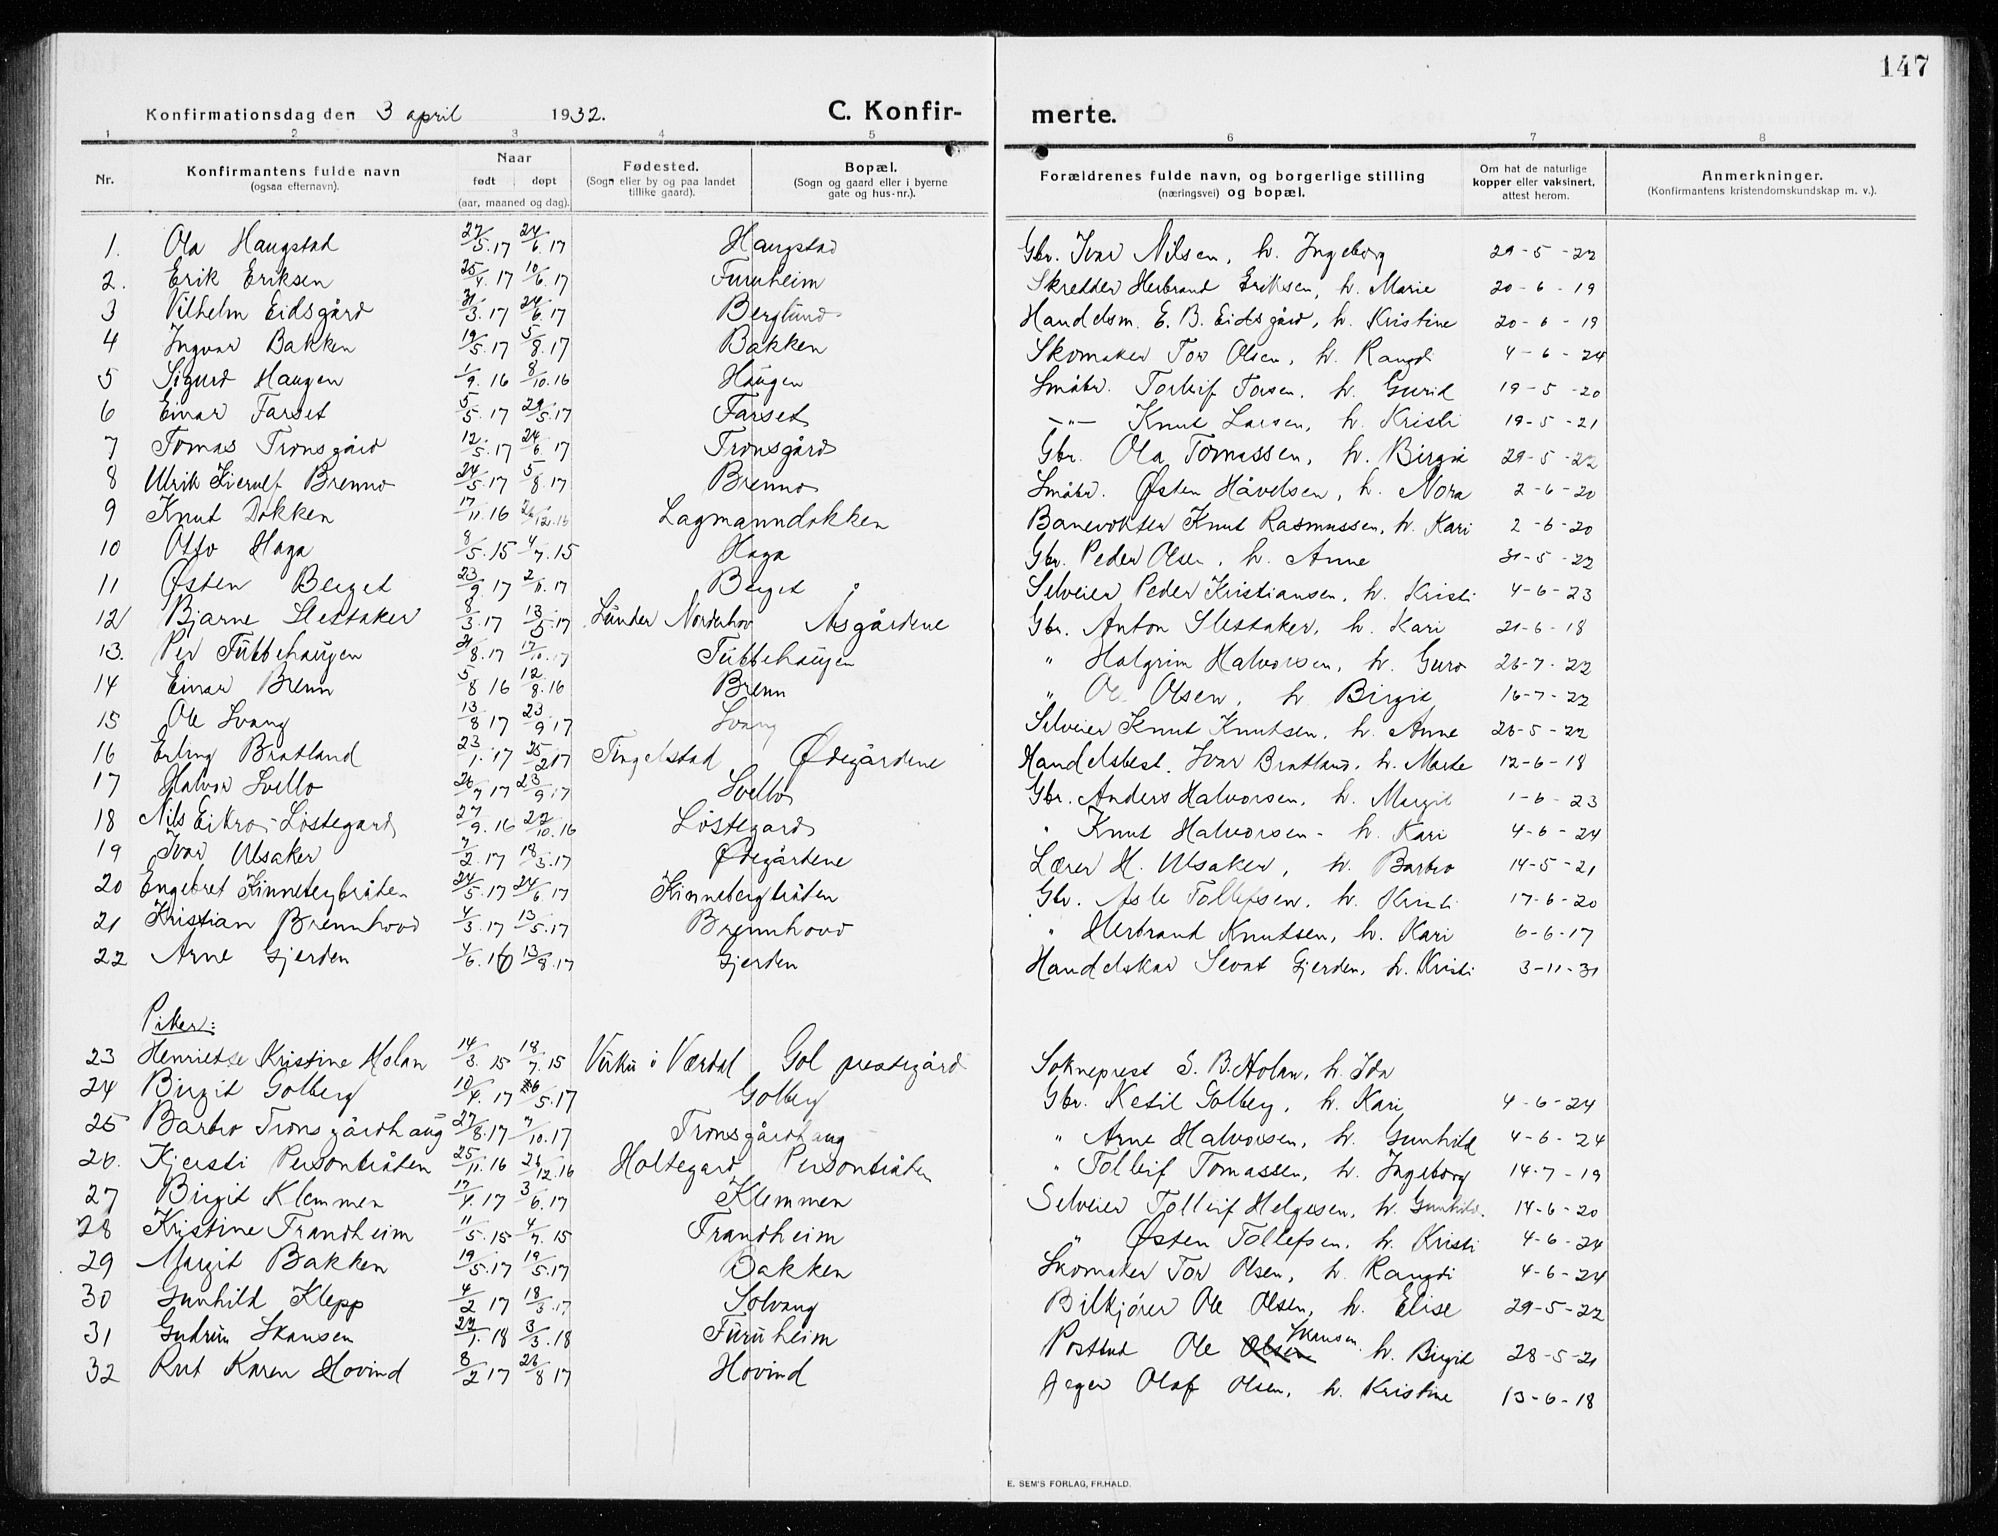 147
Konfirmationsdag den 3 april 1932. C. Konfir- merte.
1 2 3 4 5 6 7 8
Nr. Konfirmantens fulde navn (ogsaa efternavn). Naar født døpt (aar, maaned og dag). Fødested. (Sogn eller by og paa landet tillike gaard). Bopæl. (Sogn og gaard eller i byerne gate og hus-nr.). Forældrenes fulde navn, og borgerlige stilling (næringsvei) og bopæl. Om hat de naturlige kopper eller vaksinert, attest herom. Anmerkninger. (Konfirmantens kristendomskundskap m. v.).
1. Ola Haugstad 27/5.17 24/6.17 Haugstad Gbr. Ivar Nilsen, h. Ingeborg 29-5-22
2. Erik Eriksen 25/4.17 10/6.17 Furuheim Skredder Herbrand Eriksen, h. Marie 20-6-19
3 Vilhelm Eidsgård 31/3.17 24/6.17 Berglund Handelsm. E. B. Eidsgård, h. Kristine 20-6-19
4 Ingvar Bakken 19/5.17 5/8.17 Bakken Skomaker Tor Olsen, h. Rangdi 4-6-24
5 Sigurd Haugen 1/9.16 8/10.16 Haugen Småbr. Torleif Torsen, h. Gurid 19-5-20
6 Einar Farset 5/5.17 29/5.17 Farset —"— Knut Larsen, h. Kristi 19-5-21
7 Tomas Tronsgård 12/5.17 24/6.17 Tronsgård Gbr. Ola Tomassen, h. Birgit 29-5-22
8 Ulrik Brenno 24/5.17 5/8.17 Brenno Småbr. Østen Håvelsen, h. Nora 2-6-20
9 Knut Dokken 17/11.16 26/12.16 Lagmanndokken Banevokter Knut Rasmussen, h. Kari 2-6-20
10 Otto Haga 8/5.15 4/7.15 Haga Gbr. Peder Olsen, h. Anne 31-5-22
11 Østen Berget 23/9.17 2/11.17 Berget Selveier Peder Kristiansen, h. Kristi 4-6-23
12 Bjarne Slettaker 8/3.17 13/5.17 Lunder Norderhov Åsgårdene Gbr. Anton Slettaker, h. Kari 21-6-18
13. Per Tubbehaugen 31/8.17 17/10.17 Tubbehaugen " Halgrim Halvorsen, h. Guro 26-7-22
14 Einar Brenn 5/8 16 12/8.16 Brenn " Ole Olsen, h. Birgit 16-7-22
15 Ole Svang 13/8 17 23/9 17 Svang Selveier Knut Knutsen, h. Anne 26-5-22
16 Erling Bratland 23/1.17 25/2 17 Tingelstad Ødegårdene Handelsbest. Ivar Bratland, h. Marte 12-6-18
17 Halvor Svello 26/7 17 23/9.17 Svello Gbr. Anders Halvorsen, h. Margit 1-6-23
18 Nils Eikro-Løstegard 27/9.16 22/10.16 Løstegard " Knut Halvorsen - h. Kari 4-6-24
19 Ivar Ulsaker 7/2.17 18/3.17 Ødegårdene Lærer H. Ulsaker, h. Barbro 14-5-21
20 Engebret Kinnebergbråten 24/5.17 24/6 17 Kinnebergbråten Gbr. Asle Tollefsen, h. Kristi 17-6-20
21 Kristian Brennhovd 4/3.17 13/5.17 Brennhovd " Herbrand Knutsen, h. Kari 6-6-17
22 Arne Gjerden 4/6.16 13/8.17 Gjerden Handelskar Sevat Gjerden, h. Kristi 3-11-31
Piker:
23 Henriette Kristine Holan 14/3 15 18/7.15 i Værdal Gol prestegård Sokneprest S. B. Holan, h. Ida
24 Birgit Golberg 10/4.17 26/5.17 Golberg Gbr. Ketil Golberg, h. Kari 4-6-24
25 Barbro Tronsgårdhaug 27/8.17 7/10.17 Tronsgårdhaug " Arne Halvorsen, h. Gunhild 4-6-24
26. Kjersti Personbråten 25/11.16 26/12.16 Holtegard Personbråten " Tolleif Tomassen, h. Ingeborg 14-7-19
27 Birgit Klemmen 17/4.17 3/6.17 Klemmen Selveier Tolleif Helgesen, h. Gunhild. 14-6-20
28 Kristine Trandheim 11/5.15 4/7.15 Trandheim " Østen Tollefsen, h. Kristi 4-6-24
29 Margit Bakken 19/5.17 19/5.17 Bakken Skomaker Tor Olsen, h. Rangdi 4-6-24
30 Gunhild Klepp 4/2 17 18/3.17 Solvang Bilkjører Ole Olsen, h. Elise 29-5-22
31 Gudrun Skansen 27/1.18 3/3.18 Furuheim Postbud Ole Olsen Skansen. h. Birgit 28-5-21
32 Rut Karen Hovind 8/2 17 26/8 17 Hovind Jeger Olaf Olsen, h. Kristine 13-6-18
E. SEM'S FORLAG, FR.HALD.